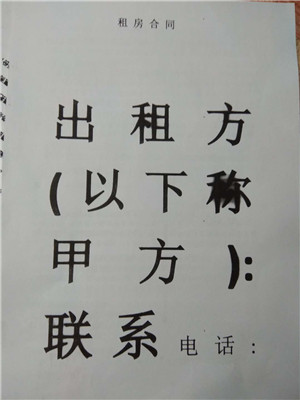 租房合同
出租方
(以下称
甲方):
联系电话: